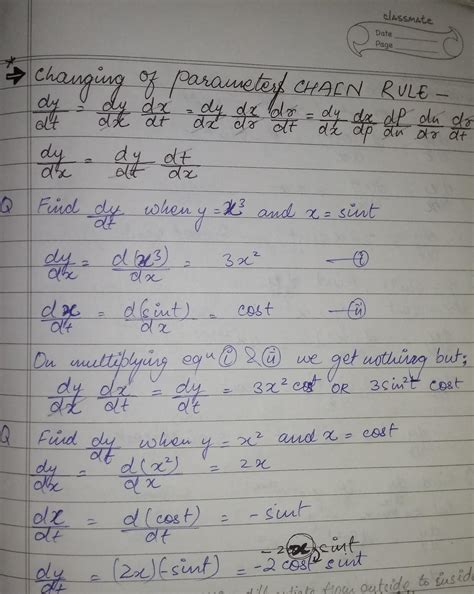 classmate
Date
Page
* → Changing of parameter/ CHAIN RULE –
dy/dt = dy/dx dx/dt = dy/dx dx/dr dr/dt = dy/dx dx/dp dp/du du/dr dr/dt
dy/dx = dy/dt dt/dx
Q Find dy/dt when y = x³ and x = sint
dy/dx = d(x³)/dx = 3x² — (i)
dx/dt = d(sint)/dx = cost — (ii)
On multiplying equ (i) & (ii) we get nothing but;
dy/dx dx/dt = dy/dt = 3x² cost OR 3sin²t cost
Q Find dy/dt when y = x² and x = cost
dy/dx = d(x²)/dx = 2x
dx/dt = d(cost)/dt = -sint
-2x sint
dy/dt = (2x)(-sint) = -2 cost sint
from outside to insid